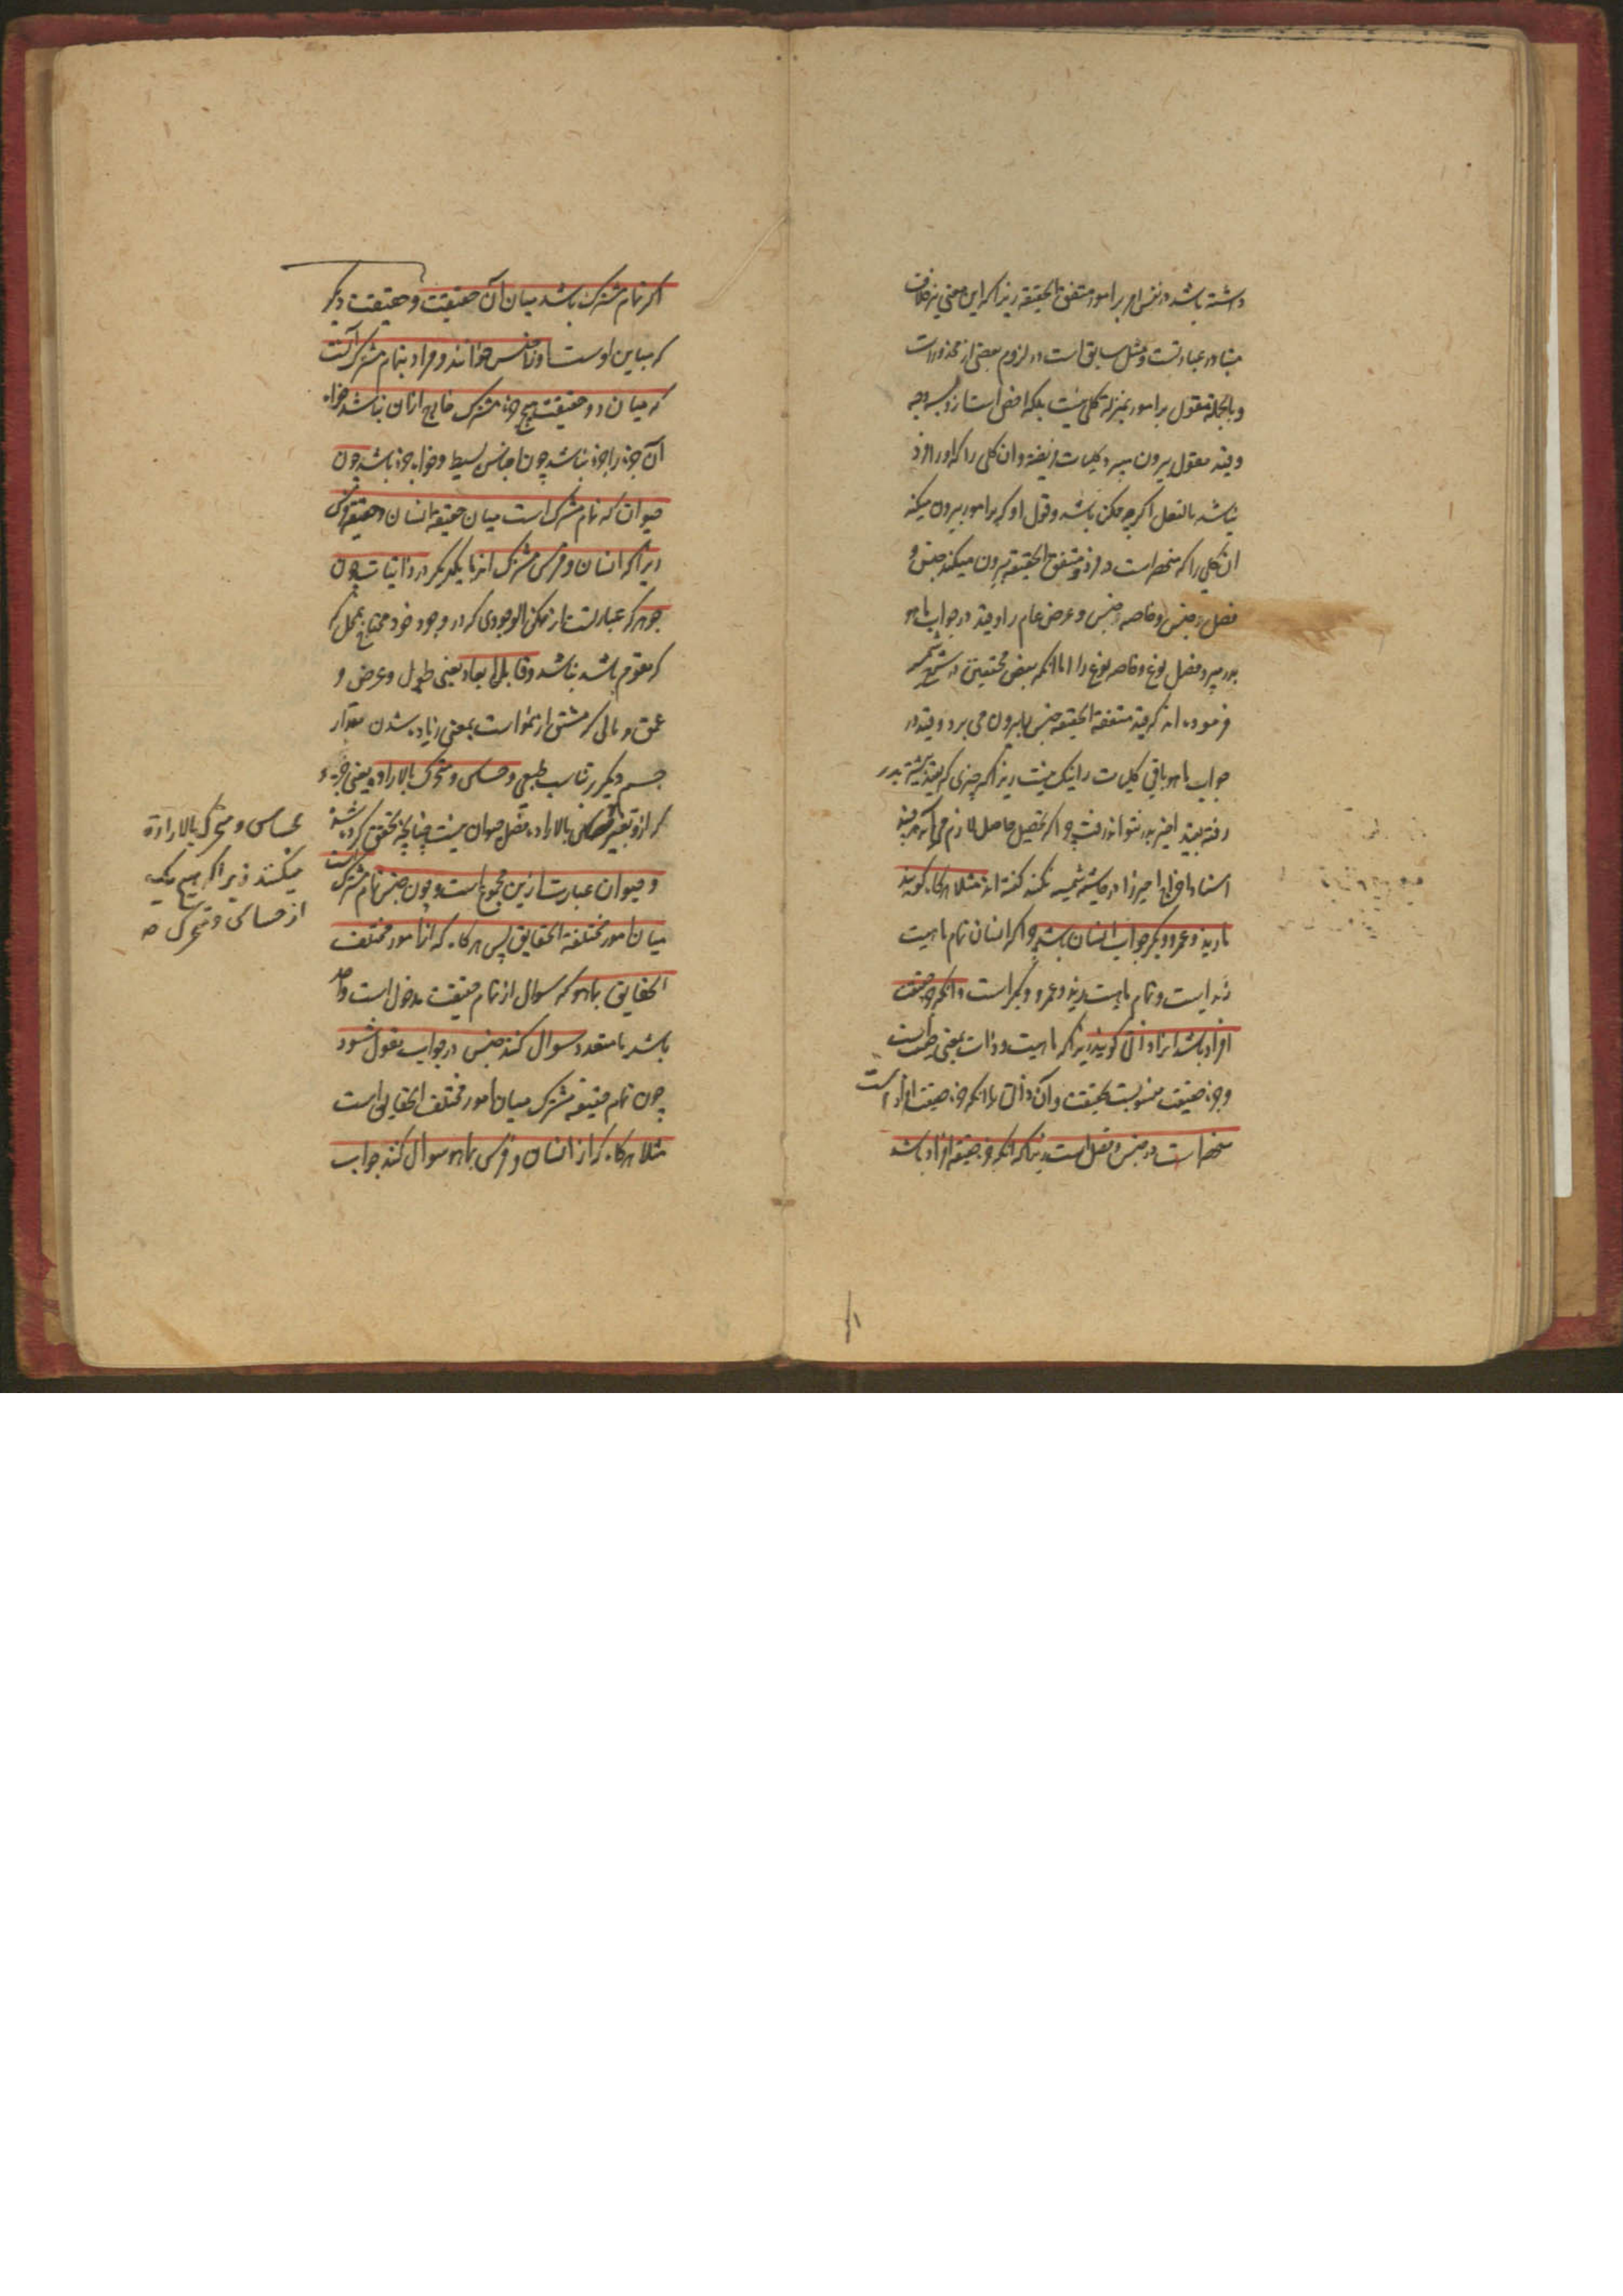 داشته باشد در نفس امر بر امور متفق الحقیقه زیرا که این معنی نیز خلاف
متبادر عبارتست و مثل سابق است در لزوم بعضی از محذورات
و بالجمله مقول بر امور بمنزله کلی نیست بلکه اخص است ازو بسه وجه
و قید مقول بیرون میبرد کلیات فرضیه و ان کلی را که او را فرد
نباشد بالفعل اکرچه ممکن باشد و قول او که بر امور بیرون میکند
ان کلی را که منحصر است در فرد و متفق الحقیقه بیرون میکند جنس و
فصل جنس و خاصه جنس و عرض عام را و قید در جواب ماهو
بدر میبرد فصل نوع و خاصه نوع را اما انکه بعض محققین در شرح شمسیه
فرموده اند که قید متفقة الحقیقه جنس را بیرون می برد و قید در
جواب ماهو باقی کلیات را نیک نیست زیرا که چیزی که بقید پیشتر بدر
رفته بقید اخیر بدر نتواند رفت چرا که تحصیل حاصل لازم می آید
اسناد اخراج امیرزا در حاشیه شمسیه نکند کفته اند مثلا هرکاه کویند
ما زید و عمرو و بکر جواب انسان باشد چرا که انسان تمام ماهیت
زید است و تمام ماهیت زید و عمرو و بکر است و انکه جزء حقیقت
افراد باشد انرا ذاتی کویند زیرا که ماهیت و ذات بمعنی حقیقت است
و جزء حقیقت منسوبست بحقیقت و آن ذاتی را انکه جزء حقیقت افراد است
منحصر است در جنس و فصل است زیرا که انکه جزء حقیقه افراد باشد
اکر تمام مشترک باشد میان آن حقیقت و حقیقت دیکر
که مباین اوست او را جنس خوانند و مراد بتمام مشترک آنست
که میان دو حقیقت هیچ جزء مشترک خارج ازان نباشد خواه
آن جزء را جزء نباشد چون اجناس بسیط و خواه جزء باشد چون
حیوان که تمام مشترک است میان حقیقة انسان و حقیقة فرس
زیرا که انسان و فرس مشترک اند با یکدیکر در ذاتیات چون
جوهر که عبارتست از ممکن الوجودی که در وجود خود محتاج بمحل که
که مقوم باشد نباشد و قابل ابعاد یعنی طول و عرض و
عمق و نامی که مشتق از نمو است بمعنی زیاده شدن مقدار
جسم دیکر بر تناسب طبیعی و حساس و متحرک بالاراده یعنی جزء
که ازو تعبیر بالاراده فصل حیوان نیست چنانچه تحقیق کرده شد
و حیوان عبارت ازین مجموع است و چون جنس تمام مشترک است
میان امور مختلفة الحقایق پس هرکاه که از امور مختلف
الحقایق بماهو که سوال از تمام حقیقت مدخول است واحد
باشد یا متعدد سوال کنند جنس در جواب مقول شود
چون تمام حقیقه مشترک میان امور مختلف الحقایق است
مثلا هرکاه که از انسان و فرس بماهو سوال کنند جواب
بحساس و متحرک بالارادة
میکنند زیرا که هیچ یک
از حساس و متحرک